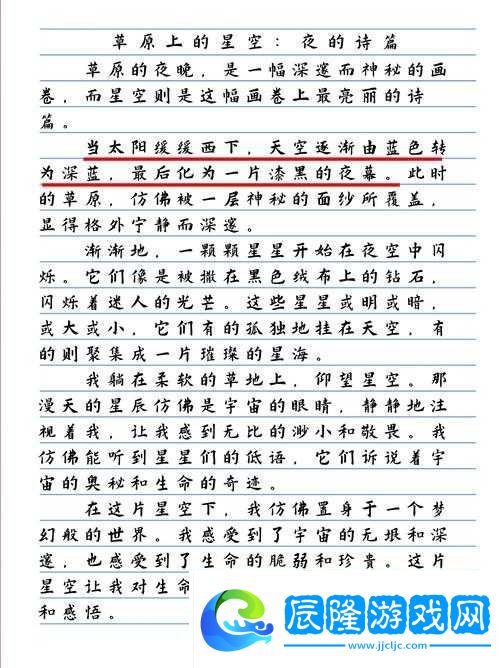 草原上的星空：夜的诗篇
草原的夜晚，是一幅深邃而神秘的画
卷，而星空则是这幅画卷上最亮丽的诗
篇。
当太阳缓缓西下，天空逐渐由蓝色转
为深蓝，最后化为一片漆黑的夜幕。此时
的草原，仿佛被一层神秘的面纱所覆盖，
显得格外宁静而深邃。
渐渐地，一颗颗星星开始在夜空中闪
烁。它们像是被撒在黑色绒布上的钻石，
闪烁着迷人的光芒。这些星星或明或暗，
或大或小，它们有的孤独地挂在天空，有
的则聚集成一片璀璨的星海。
我躺在柔软的草地上，仰望星空。那
漫天的星辰仿佛是宇宙的眼睛，静静地注
视着我，让我感到无比的渺小和敬畏。我
仿佛能听到星星们的低语，它们诉说着宇
宙的奥秘和生命的奇迹。
在这片星空下，我仿佛置身于一个梦
幻般的世界。我感受到了宇宙的无垠和深
邃，也感受到了生命的脆弱和珍贵。这片
星空让我对生命
和感悟。
辰隆游戏网
www.jjcljc.com